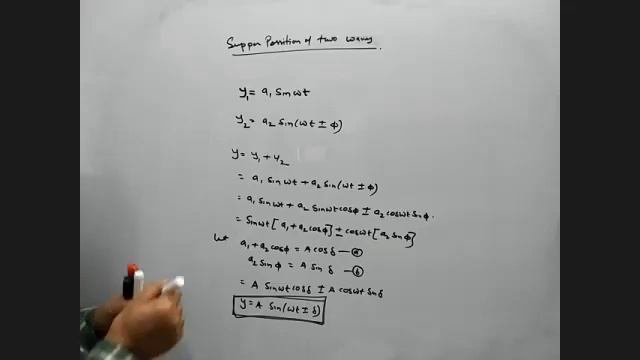 Supper Position of two waves
y₁ = a₁ sin ωt
y₂ = a₂ sin(ωt ± ϕ)
y = y₁ + y₂
= a₁ sin ωt + a₂ sin(ωt ± ϕ)
= a₁ sin ωt + a₂ sin ωt cos ϕ ± a₂ cos ωt sin ϕ.
= sin ωt [a₁ + a₂ cos ϕ] ± cos ωt [a₂ sin ϕ]
let a₁ + a₂ cos ϕ = A cos δ — ⓐ
a₂ sin ϕ = A sin δ — ⓑ
= A sin ωt cos δ ± A cos ωt sin δ
y = A sin(ωt ± δ)